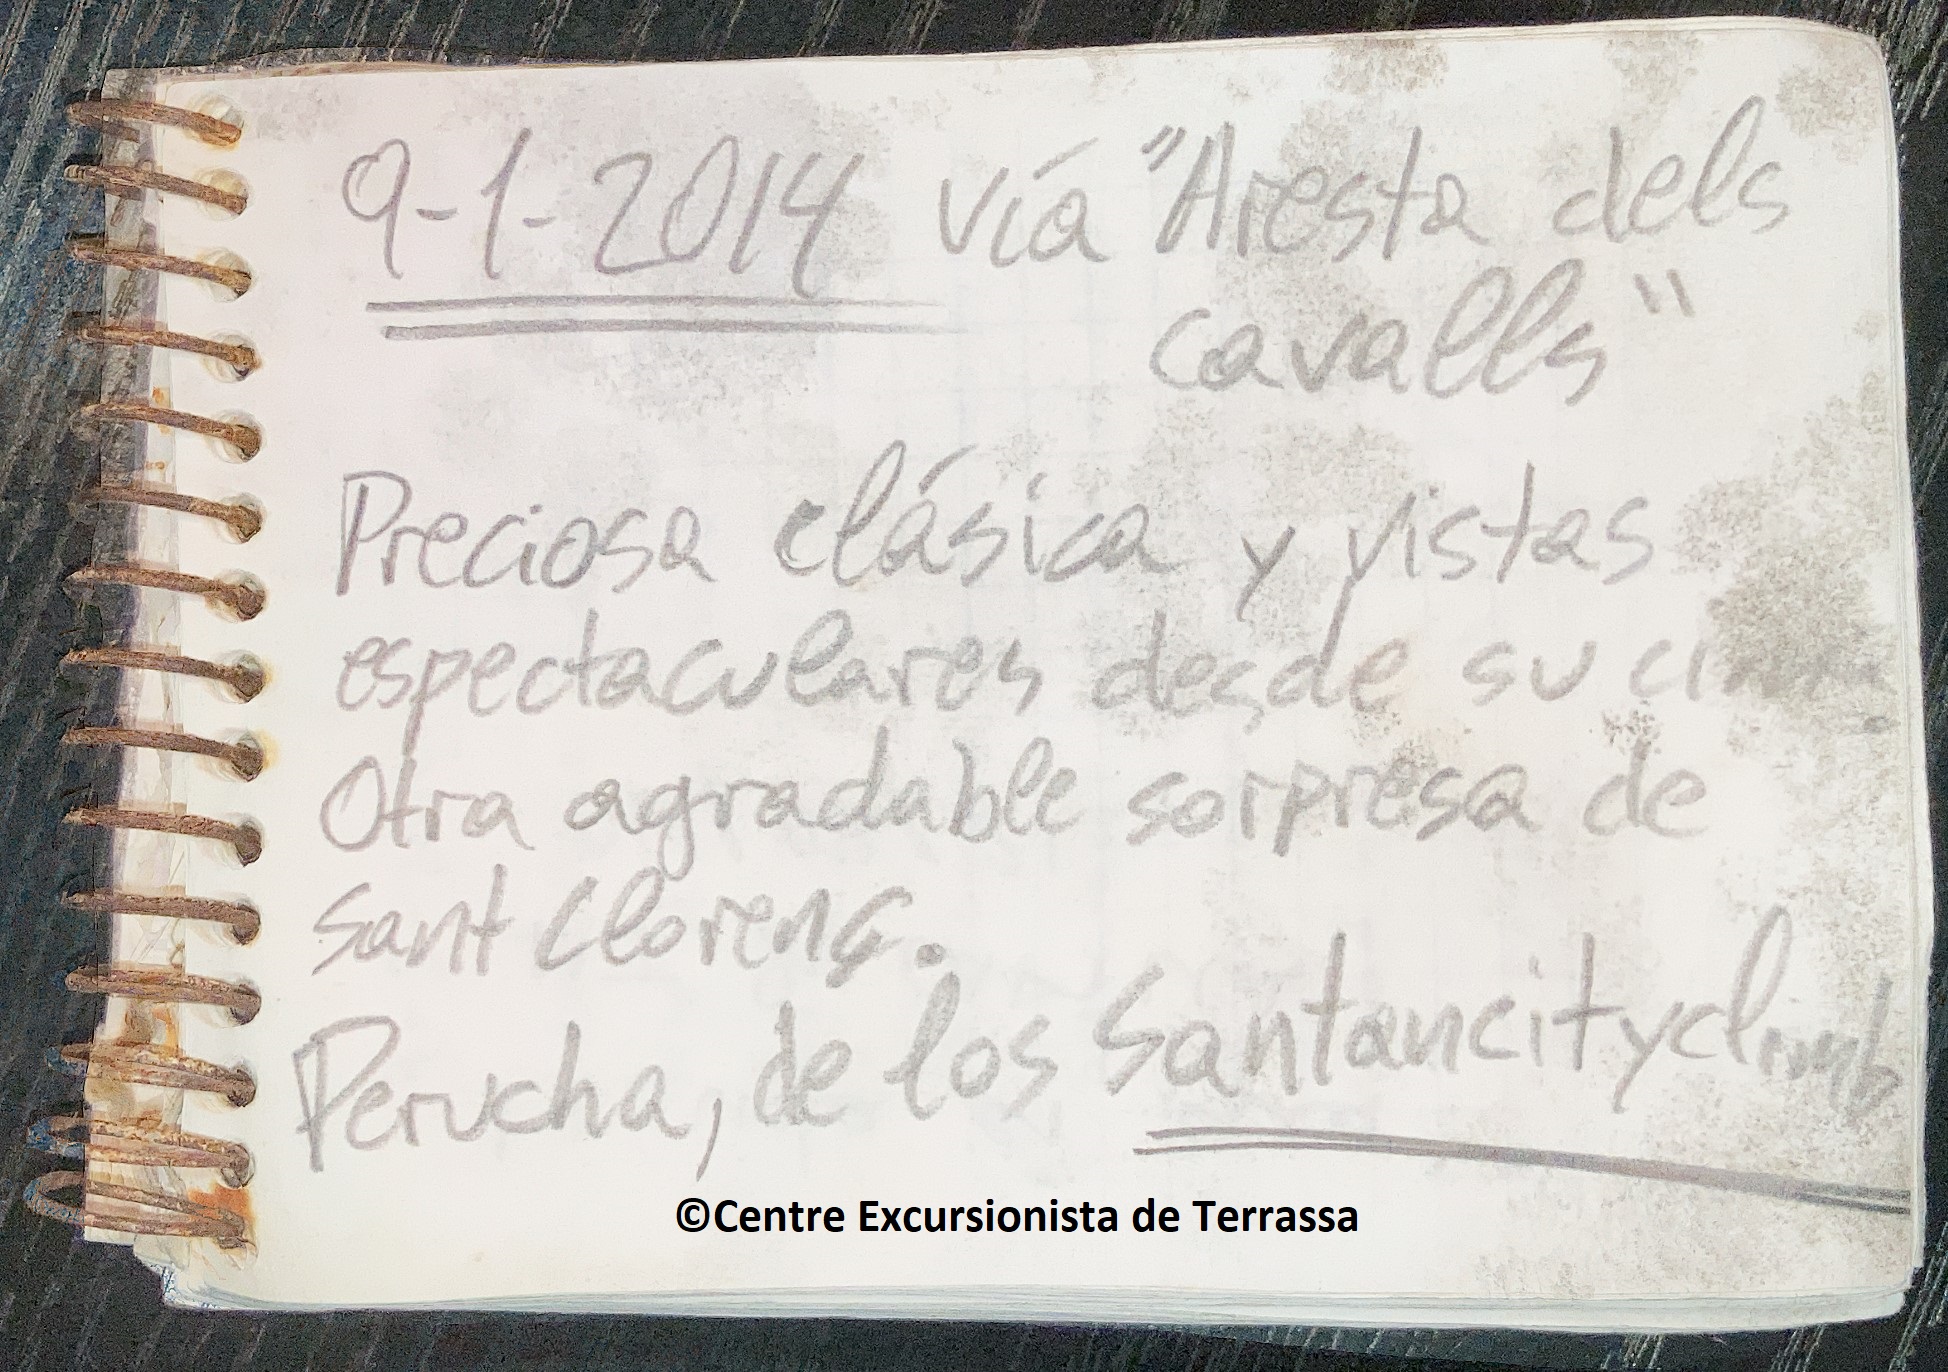 9-1-2014 vía "Aresta dels
cavalls"
Preciosa clásica y vistas
espectaculares desde su
Otra agradable sorpresa de
Sant Clorenç.
Perucha, de los Santancityclimb
©Centre Excursionista de Terrassa